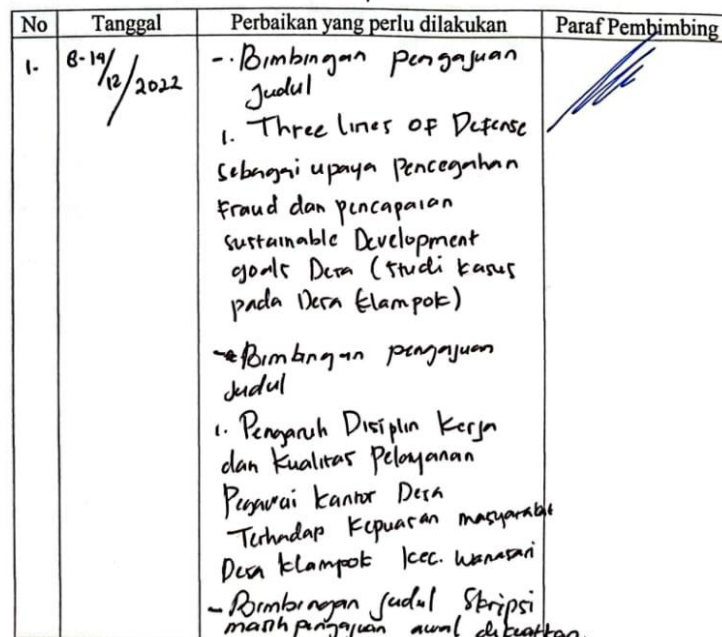 No Tanggal Perbaikan yang perlu dilakukan Paraf Pembimbing
1. 8-19/12/2022 - Bimbingan pengajuan
Judul
1. Three lines OF Defense
sebagai upaya pencegahan
Fraud dan pencapaian
sustainable Development
goals Desa (studi kasus
pada Desa Klampok)
- Bimbingan pengajuan
Judul
1. Pengaruh Disiplin Kerja
dan Kualitas Pelayanan
Pegawai Kantor Desa
Terhadap Kepuasan masyarakat
Desa Klampok kec. Wanasari
- Bimbingan Judul Skripsi
masih pengajuan awal